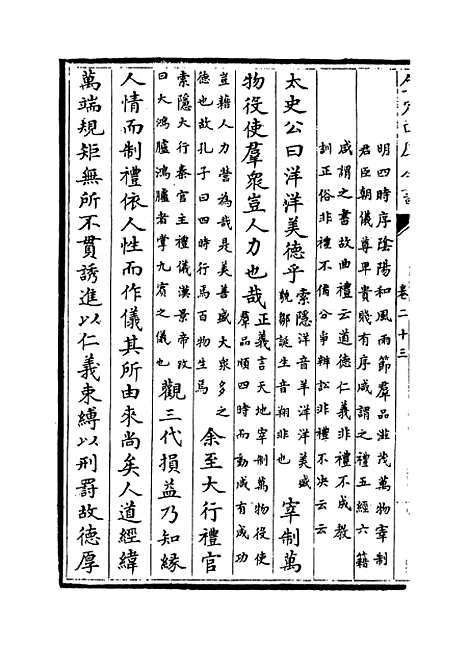 卷二十三
明四時序陰陽和風雨節羣品滋茂萬物宰制
君臣朝儀尊卑貴賤有序咸謂之禮五經六籍
咸謂之書故曲禮云道德仁義非禮不成教
訓正俗非禮不備分爭辯訟非禮不決云云
太史公曰洋洋美德乎索隱洋音羊洋洋美盛貌鄒誕生音翔非也宰制萬
物役使羣衆豈人力也哉正義言天地宰制萬物役使羣品順四時而動咸有成功
豈藉人力營為哉是美善盛大衆多之德也故孔子曰四時行焉百物生焉余至大行禮官
索隱大行秦官主禮儀漢景帝改曰大鴻臚鴻臚者掌九賓之儀也觀三代損益乃知縁
人情而制禮依人性而作儀其所由來尚矣人道經緯
萬端規矩無所不貫誘進以仁義束縛以刑罰故德厚